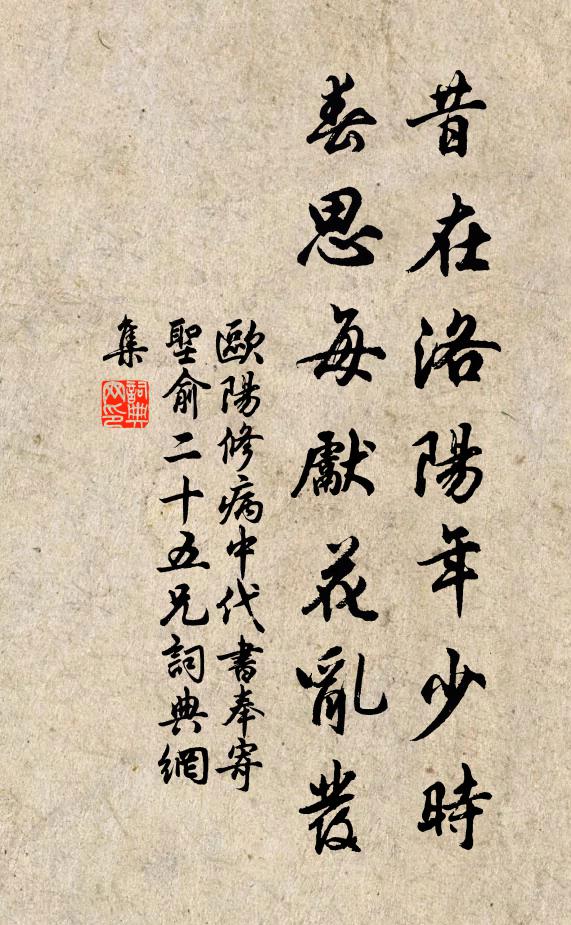 昔在洛陽年少時
春思每獻花亂發
歐陽修病中代書奉寄
聖俞二十五兄詞典網
集
詞典網印